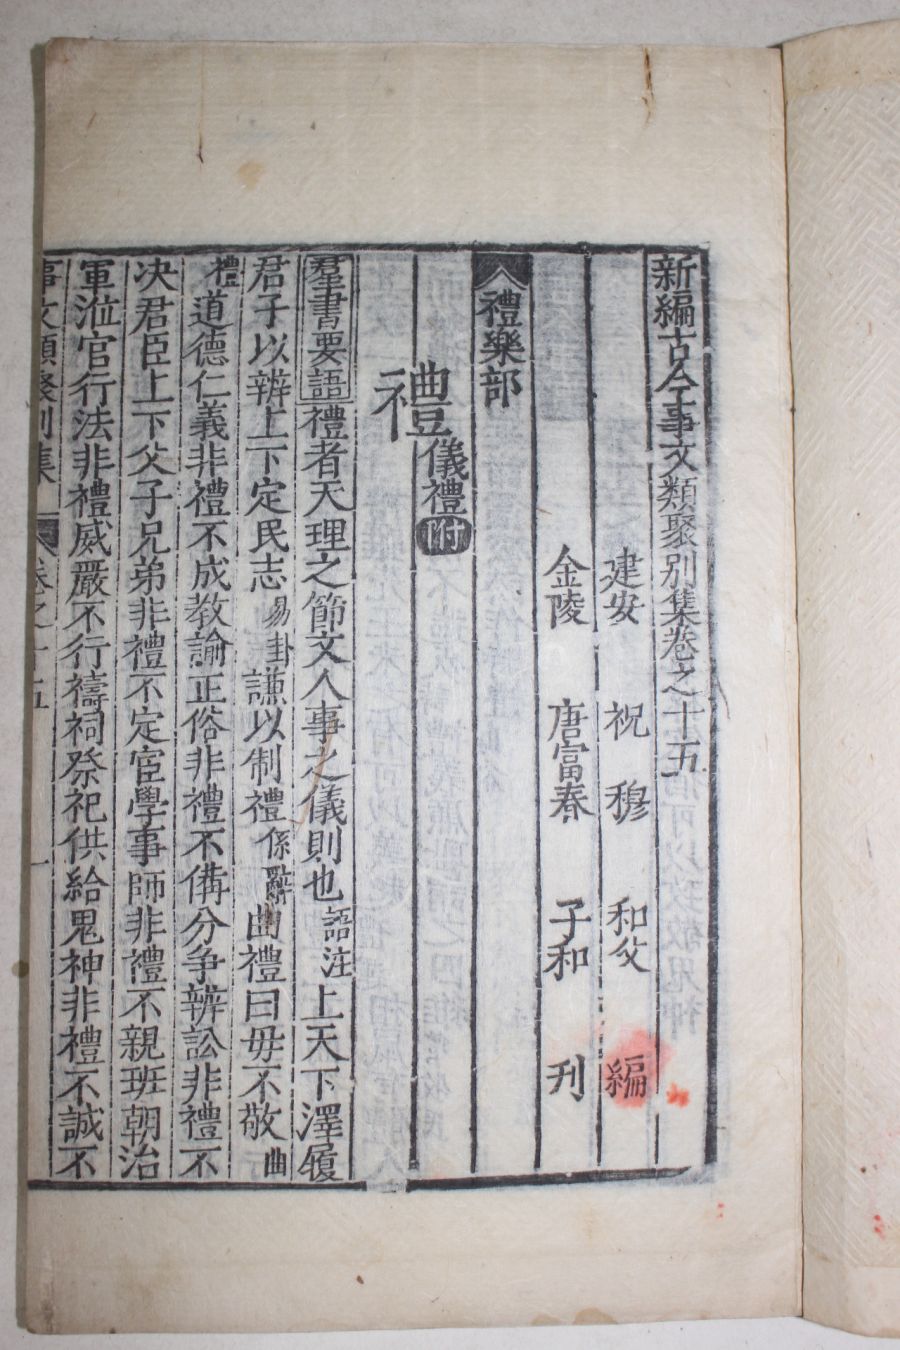 新編古今事文類聚別集卷之十五
建安 祝 穆 和父 編
金陵 唐富春 子和 刊
禮樂部
禮儀禮附
羣書要語禮者天理之節文人事之儀則也語注上天下澤履
君子以辨上下定民志易卦謙以制禮係辭曲禮曰毋不敬曲
禮道德仁義非禮不成教論正俗非禮不備分争辨訟非禮不
决君臣上下父子兄弟非禮不定宦學事師非禮不親班朝治
軍涖官行法非禮威嚴不行禱祠祭祀供給鬼神非禮不誠不
事文類聚別集 卷之十五 一